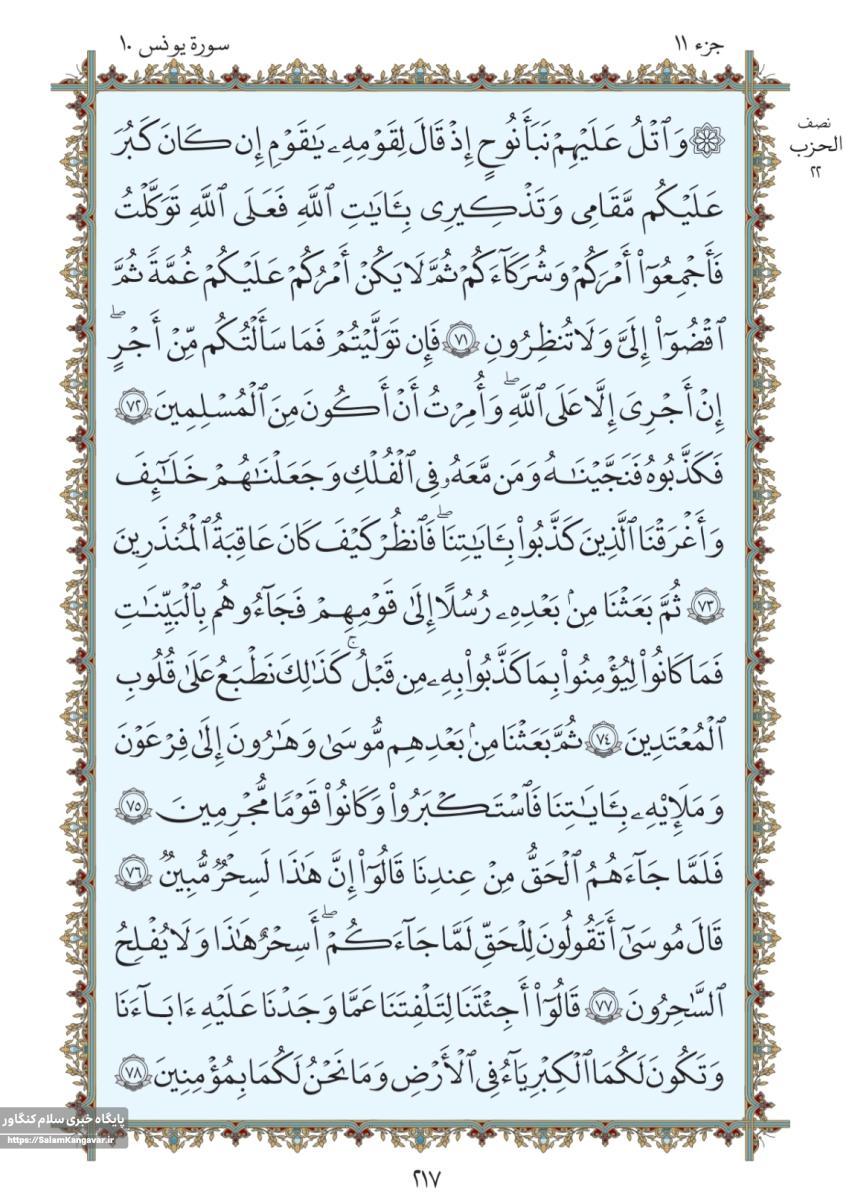 جزء ۱۱
سورة يونس ۱۰
نصف
الحزب
۲۲
۞ وَٱتْلُ عَلَيْهِمْ نَبَأَ نُوحٍ إِذْ قَالَ لِقَوْمِهِۦ يَٰقَوْمِ إِن كَانَ كَبُرَ
عَلَيْكُم مَّقَامِى وَتَذْكِيرِى بِـَٔايَٰتِ ٱللَّهِ فَعَلَى ٱللَّهِ تَوَكَّلْتُ
فَأَجْمِعُوٓا۟ أَمْرَكُمْ وَشُرَكَآءَكُمْ ثُمَّ لَا يَكُنْ أَمْرُكُمْ عَلَيْكُمْ غُمَّةً ثُمَّ
ٱقْضُوٓا۟ إِلَىَّ وَلَا تُنظِرُونِ ﴿۷۱﴾ فَإِن تَوَلَّيْتُمْ فَمَا سَأَلْتُكُم مِّنْ أَجْرٍ ۖ
إِنْ أَجْرِىَ إِلَّا عَلَى ٱللَّهِ ۖ وَأُمِرْتُ أَنْ أَكُونَ مِنَ ٱلْمُسْلِمِينَ ﴿۷۲﴾
فَكَذَّبُوهُ فَنَجَّيْنَٰهُ وَمَن مَّعَهُۥ فِى ٱلْفُلْكِ وَجَعَلْنَٰهُمْ خَلَٰٓئِفَ
وَأَغْرَقْنَا ٱلَّذِينَ كَذَّبُوا۟ بِـَٔايَٰتِنَا ۖ فَٱنظُرْ كَيْفَ كَانَ عَٰقِبَةُ ٱلْمُنذَرِينَ
﴿۷۳﴾ ثُمَّ بَعَثْنَا مِنۢ بَعْدِهِۦ رُسُلًا إِلَىٰ قَوْمِهِمْ فَجَآءُوهُم بِٱلْبَيِّنَٰتِ
فَمَا كَانُوا۟ لِيُؤْمِنُوا۟ بِمَا كَذَّبُوا۟ بِهِۦ مِن قَبْلُ ۚ كَذَٰلِكَ نَطْبَعُ عَلَىٰ قُلُوبِ
ٱلْمُعْتَدِينَ ﴿۷۴﴾ ثُمَّ بَعَثْنَا مِنۢ بَعْدِهِم مُّوسَىٰ وَهَٰرُونَ إِلَىٰ فِرْعَوْنَ
وَمَلَإِي۟هِۦ بِـَٔايَٰتِنَا فَٱسْتَكْبَرُوا۟ وَكَانُوا۟ قَوْمًا مُّجْرِمِينَ ﴿۷۵﴾
فَلَمَّا جَآءَهُمُ ٱلْحَقُّ مِنْ عِندِنَا قَالُوٓا۟ إِنَّ هَٰذَا لَسِحْرٌ مُّبِينٌ ﴿۷۶﴾
قَالَ مُوسَىٰٓ أَتَقُولُونَ لِلْحَقِّ لَمَّا جَآءَكُمْ ۖ أَسِحْرٌ هَٰذَا وَلَا يُفْلِحُ
ٱلسَّٰحِرُونَ ﴿۷۷﴾ قَالُوٓا۟ أَجِئْتَنَا لِتَلْفِتَنَا عَمَّا وَجَدْنَا عَلَيْهِ ءَابَآءَنَا
وَتَكُونَ لَكُمَا ٱلْكِبْرِيَآءُ فِى ٱلْأَرْضِ وَمَا نَحْنُ لَكُمَا بِمُؤْمِنِينَ ﴿۷۸﴾
پایگاه خبری سلام کنگاور
https://SalamKangavar.ir
۲۱۷